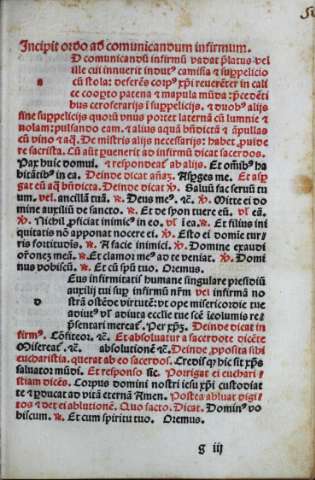 Incipit ordo ad comunicandum infirmum.
D comunicandū infirmū vadat p̄latus vel
ille cui innuerit indutꝰ camisia ⁊ suꝑpelicio
cū stola: deferēs corpꝰ xp̄i reuerēter in cali
ce cooꝑto patena ⁊ mapula mūda: p̄cedēti
bus ceroferarijs ī suꝑpelicijs. ⁊ duobꝰ alijs
sine suꝑpelicijs quorū vnus portet laternā cū lumine ⁊
nolam: pulsando eam. ⁊ alius aquā bn̄dictā ⁊ ampullas
cū vino ⁊ aq̄. De mīstris alijs necessarijs: habet
de sacrista. Cū aūt ꝑuenerit ad infirmū dicat sacerdos.
Pax huic domui. ⁊ respondeāt ab alijs. Et om̄ibꝰ ha
bitātibꝰ in ea. Deinde dicat añaz. Asꝑges me. Et asꝑ
gat eū aq̄ bn̄dicta. Deinde dicat ℣. Saluū fac seruū tu
um. vel. ancillā tuā. ℟. Deus meꝰ. ⁊c̄. ℣. Mitte ei do
mine auxiliū de sancto. ℟. Et de syon tuere eū. vl̓ eā.
℣. Nichil ꝓficiat inimicꝰ in eo. vl̓ ī ea. ℟. Et filius ini
quitatis nō apponat nocere ei. ℣. Esto ei domīe turr
ris fortitudis. ℟. A facie inimici. ℣. Domine exaudi
or̄onez meā. ℟. Et clamor meꝰ ad te veniat. ℣. Domi
nus vobiscū. ℟. Et cū sp̄u tuo. Oremus.
Deus infirmitatis humane singulare presidiū
auxilij tui suꝑ infirmū nr̄m vel infirmā no
strā ostēde virtutē: vt ope misericordie tue
adiutꝰ vl̓ adiuta ecclīe tue scē icolumis re
p̄sentari mereat̄. Per xp̄m. Deinde dicat in
firmꝰ. Cōfiteor. ⁊c̄. Et absoluatur a sacerdote dicēte
Misereat̄. ⁊c̄. absolutionē ⁊c̄. Deinde ꝓposita sibi
eucharistia. querat ab eo sacerdos. Credis q̄ hic sit xp̄s
saluator mūdi. Et responso sic. Porrigat ei euchari
stiam dicēs. Corpus domini nostri iesu xp̄i custodiat
te ⁊ ꝑducat ad vitā eternā Amen. Postea abluat digi
tos ⁊ det ei ablutionē. Quo facto. Dicat. Dominꝰ vo
biscum. ℟. Et cum spiritu tuo. Oremus.
g iij